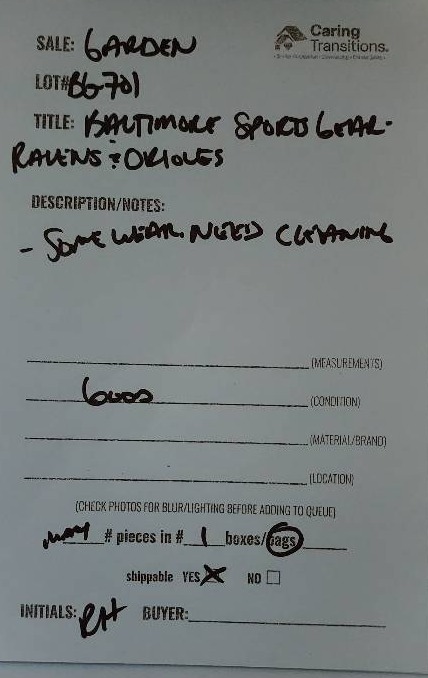 SALE: GARDEN
Caring
Transitions.
LOT# BG-701
TITLE: BALTIMORE SPORTS GEAR-
RAVENS & ORIOLES
DESCRIPTION/NOTES:
- SOME WEAR. NEED CLEANING
(MEASUREMENTS)
GOOD (CONDITION)
(MATERIAL/BRAND)
(LOCATION)
(CHECK PHOTOS FOR BLUR/LIGHTING BEFORE ADDING TO QUEUE)
many # pieces in # 1 boxes/bags
shippable YES X NO
INITIALS: RH BUYER: